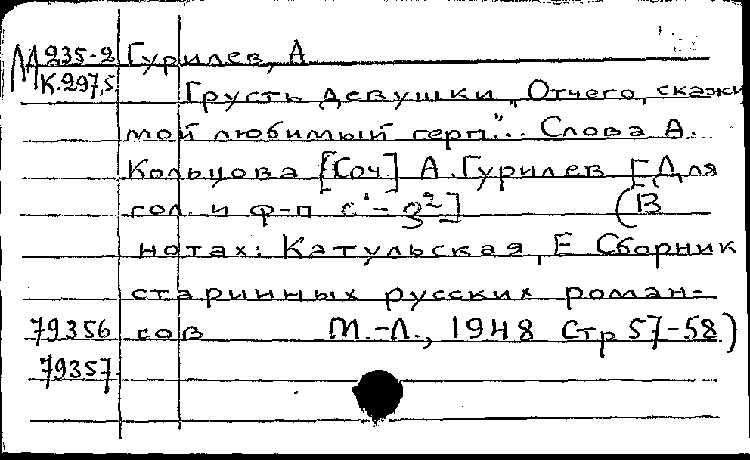 М 235-2 Гурилев, А
К.297,5 Грусть девушки „Отчего, скажи
мой любимый серп"... Слова А.
Кольцова [Соч] А. Гурилев [Для
гол. и ф-п с¹-g²] (В
нотах: Катульская, Е Сборник
старинных русских роман-
79356 сов М.-Л., 1948 Стр 57-58)
79357